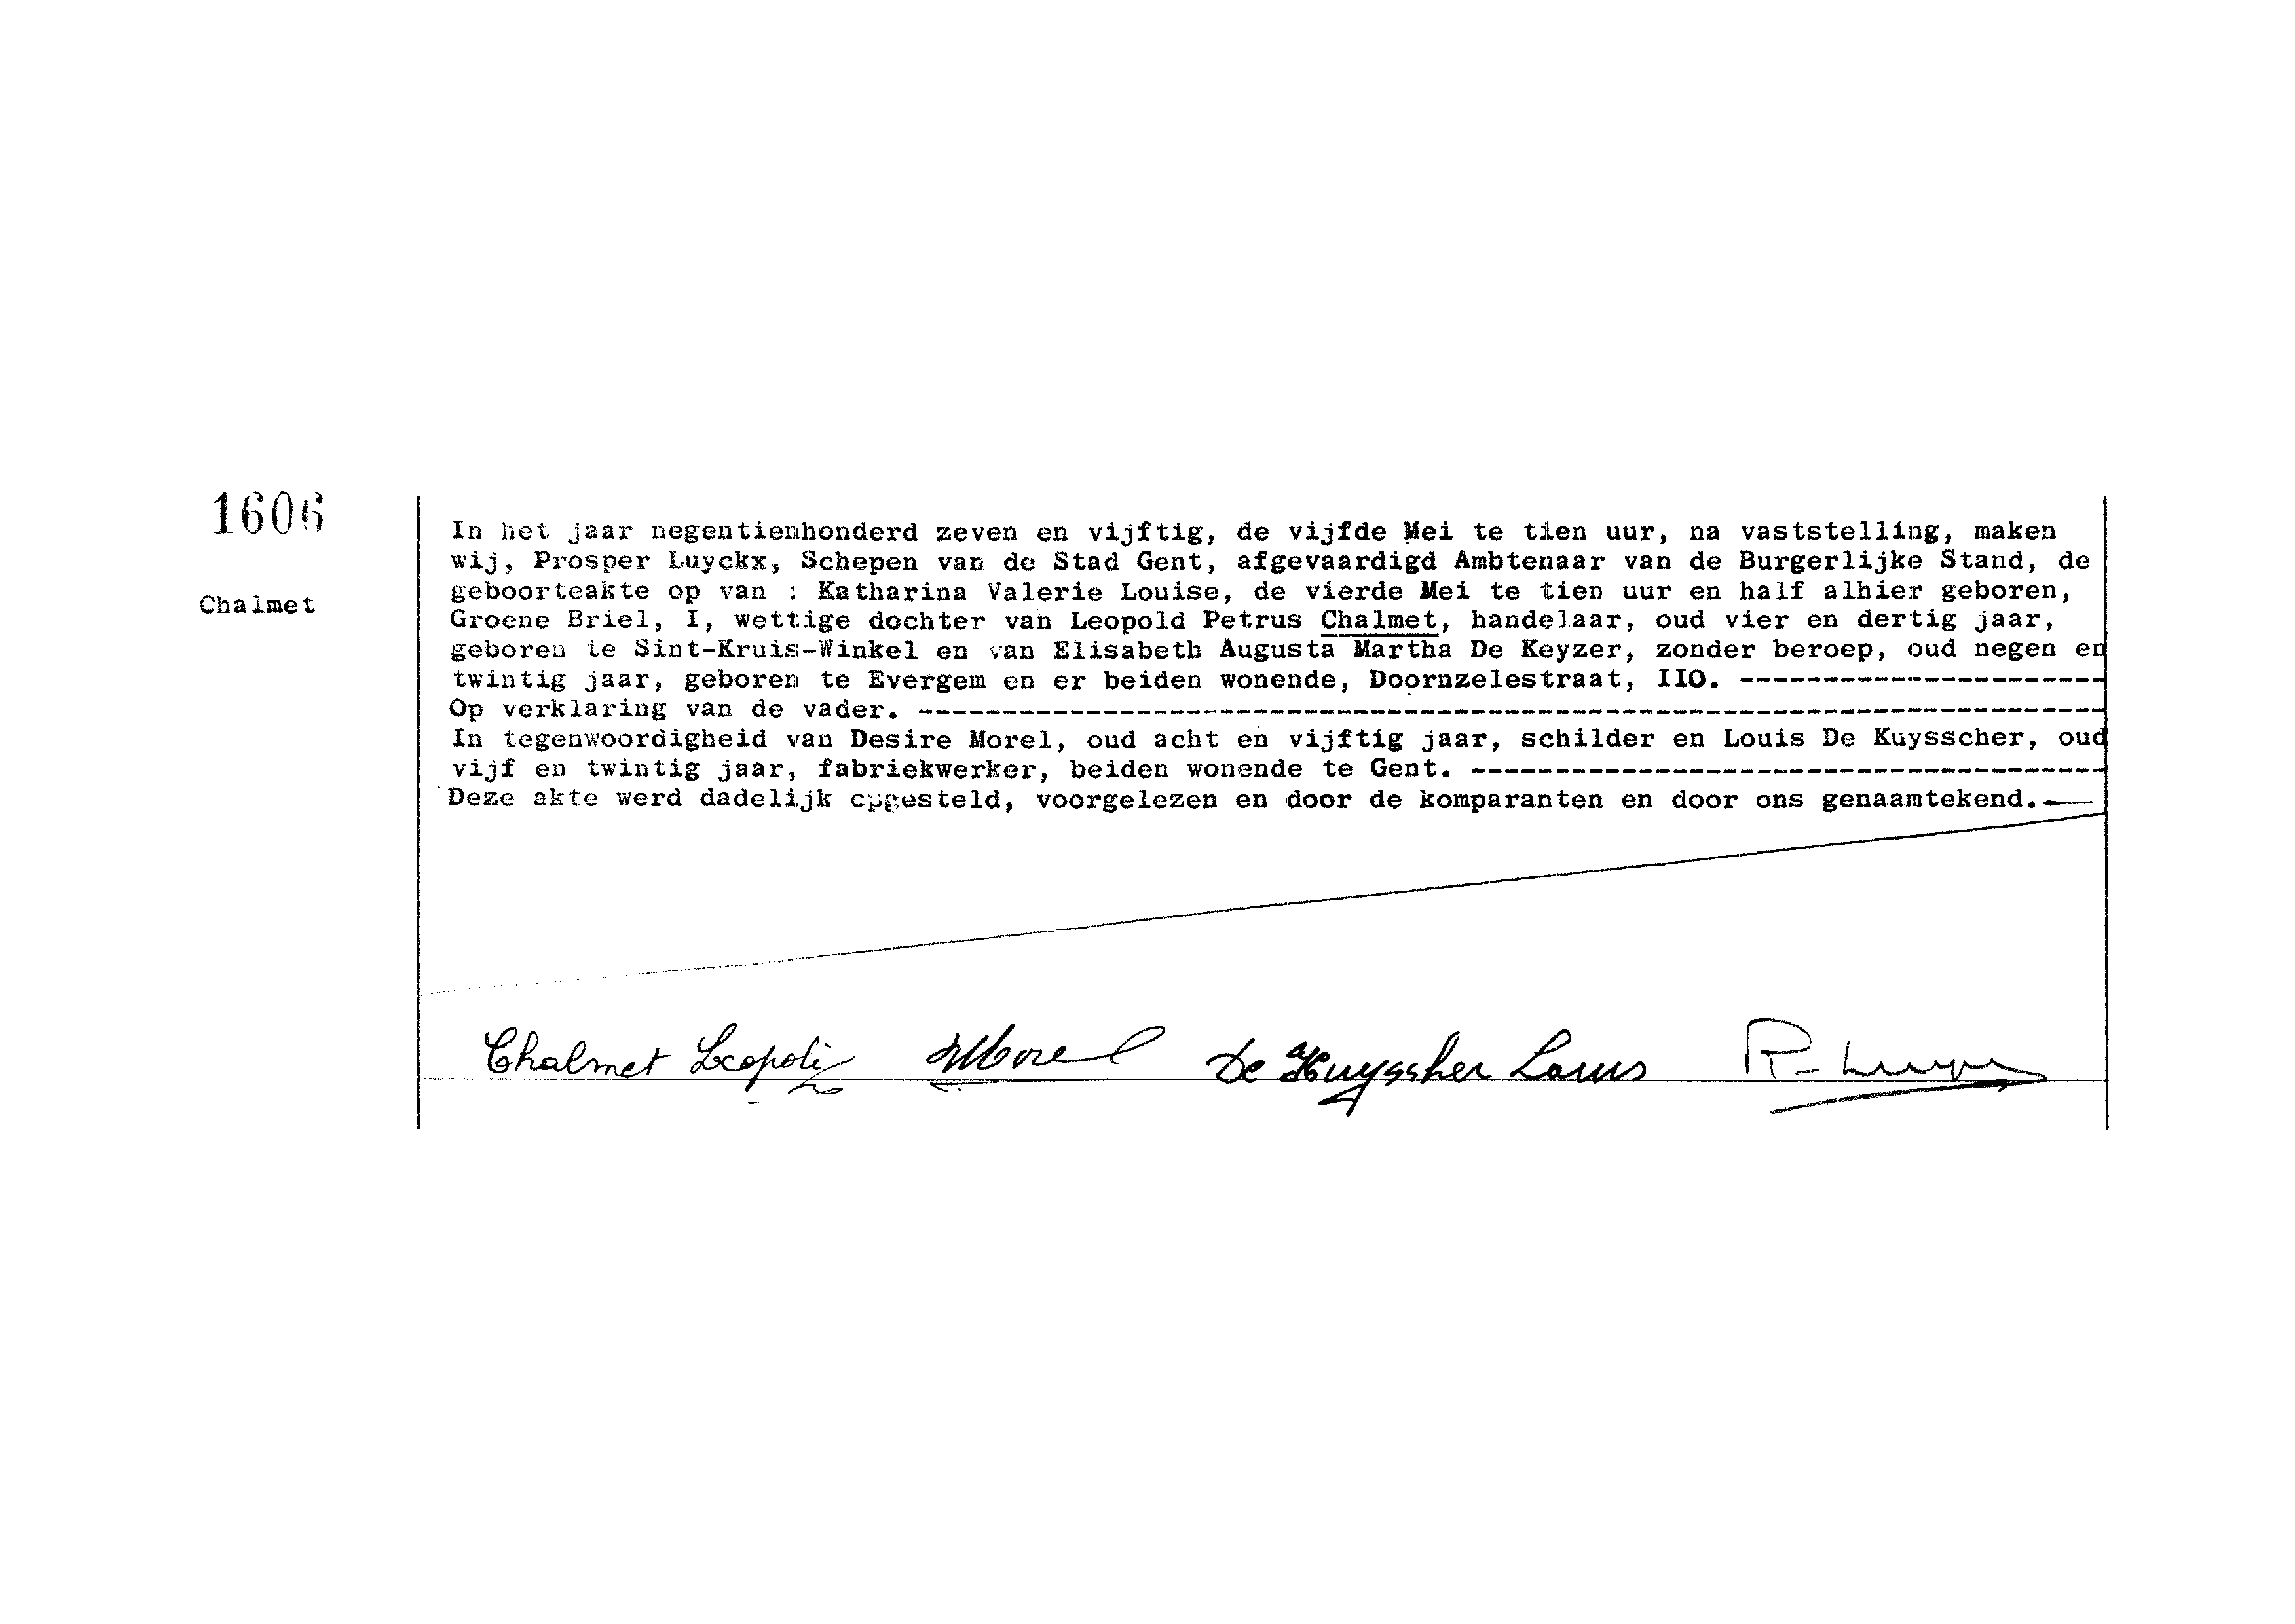 1606
Chalmet
In het jaar negentienhonderd zeven en vijftig, de vijfde Mei te tien uur, na vaststelling, maken
wij, Prosper Luyckx, Schepen van de Stad Gent, afgevaardigd Ambtenaar van de Burgerlijke Stand, de
geboorteakte op van : Katharina Valerie Louise, de vierde Mei te tien uur en half alhier geboren,
Groene Briel, I, wettige dochter van Leopold Petrus Chalmet, handelaar, oud vier en dertig jaar,
geboren te Sint-Kruis-Winkel en van Elisabeth Augusta Martha De Keyzer, zonder beroep, oud negen en
twintig jaar, geboren te Evergem en er beiden wonende, Doornzelestraat, IIO. ----------------------
Op verklaring van de vader. -----------------------------------------------------------------------
In tegenwoordigheid van Desire Morel, oud acht en vijftig jaar, schilder en Louis De Kuysscher, oud
vijf en twintig jaar, fabriekwerker, beiden wonende te Gent. --------------------------------------
Deze akte werd dadelijk opgesteld, voorgelezen en door de komparanten en door ons genaamtekend.—
Chalmet Leopold Morel De Kuysscher Louis